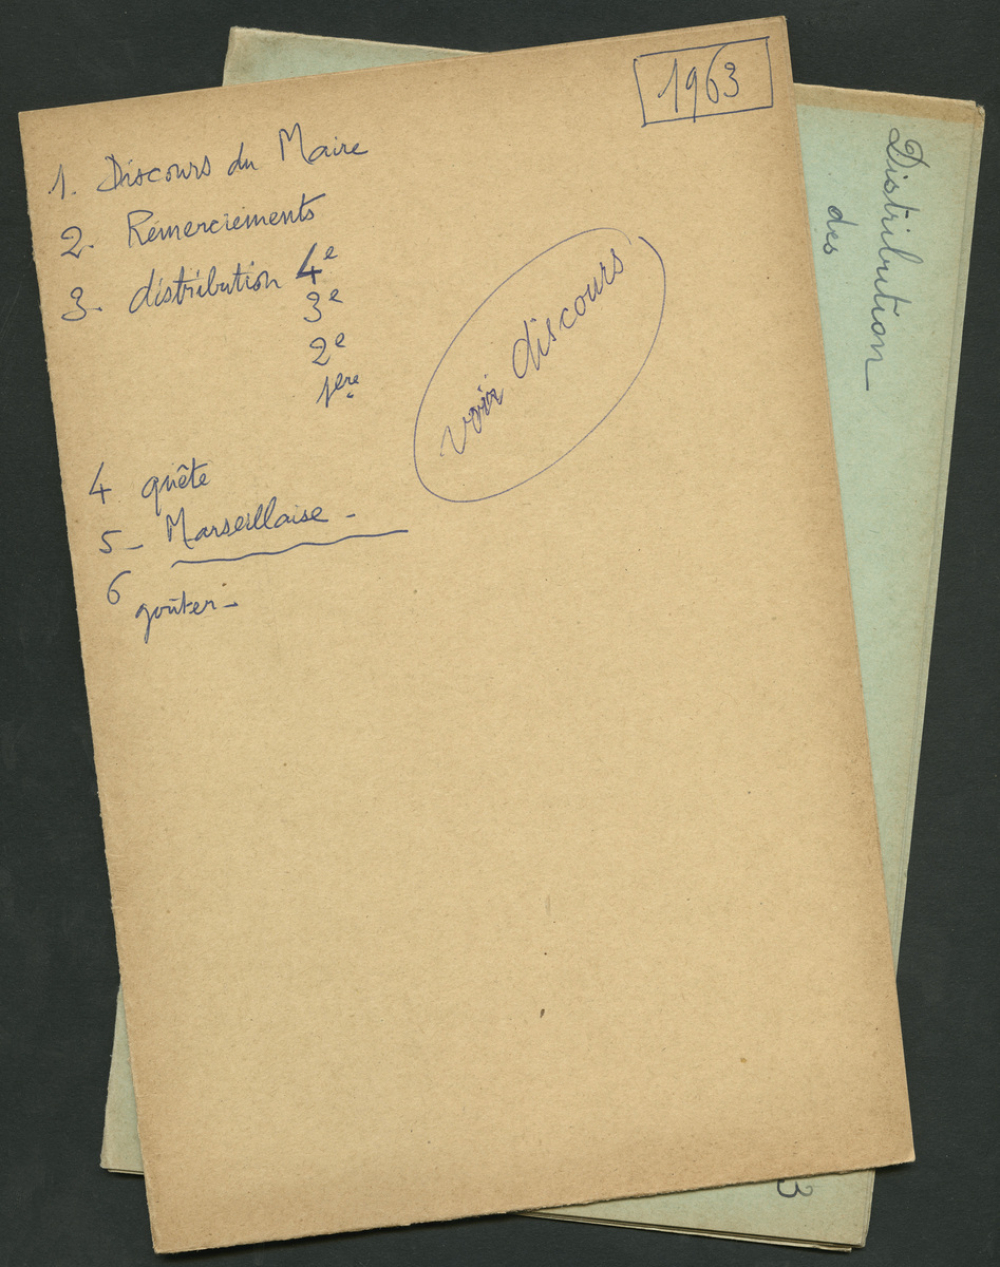 1963
1. Discours du Maire
2. Remerciements
3. distribution 4e
3e
2e
1ère
voir discours
4 quête
5 - Marseillaise -
6 goûter -
Distribution
des
3